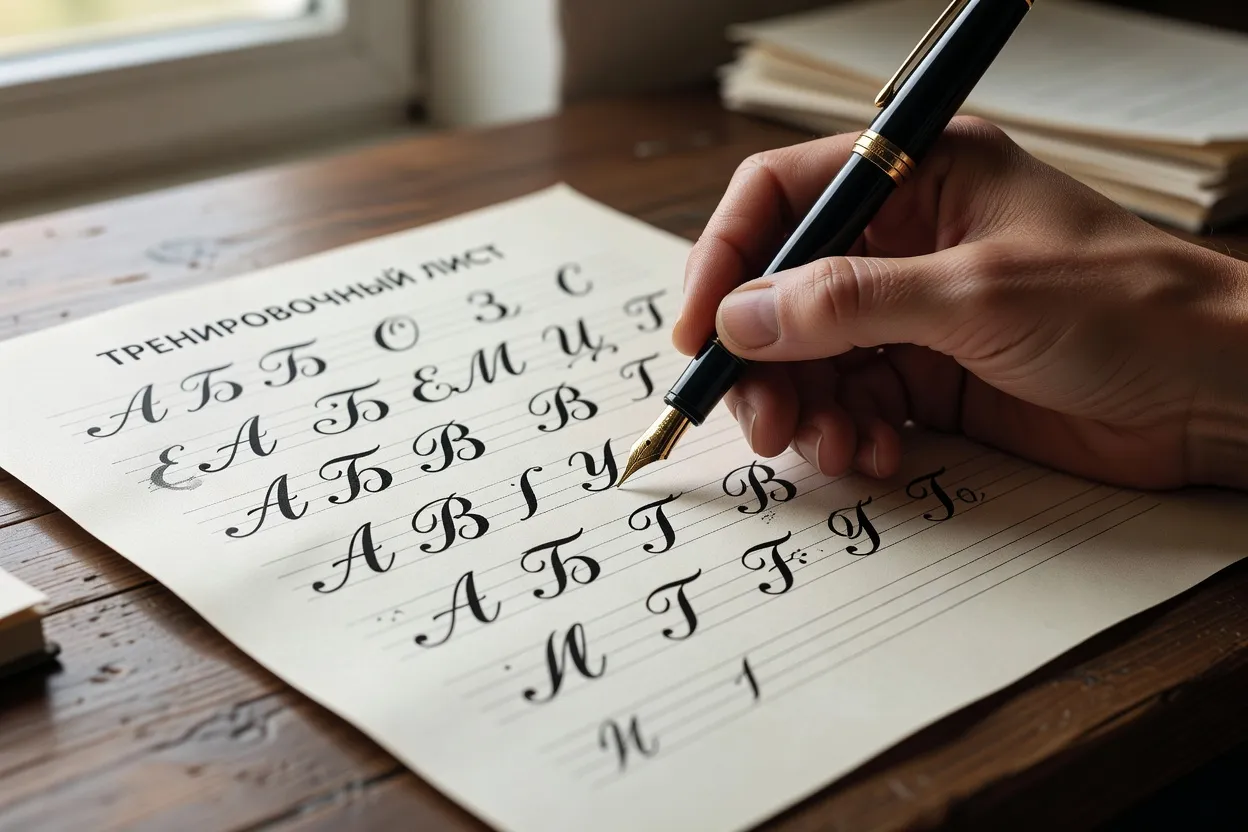 ТРЕНИРОВОЧНЫЙ ЛИСТ
А Б Б О З С
Е А Б Е М Ц Т
А Б В В Т
А В У
А Б Т В
И Т Т
И